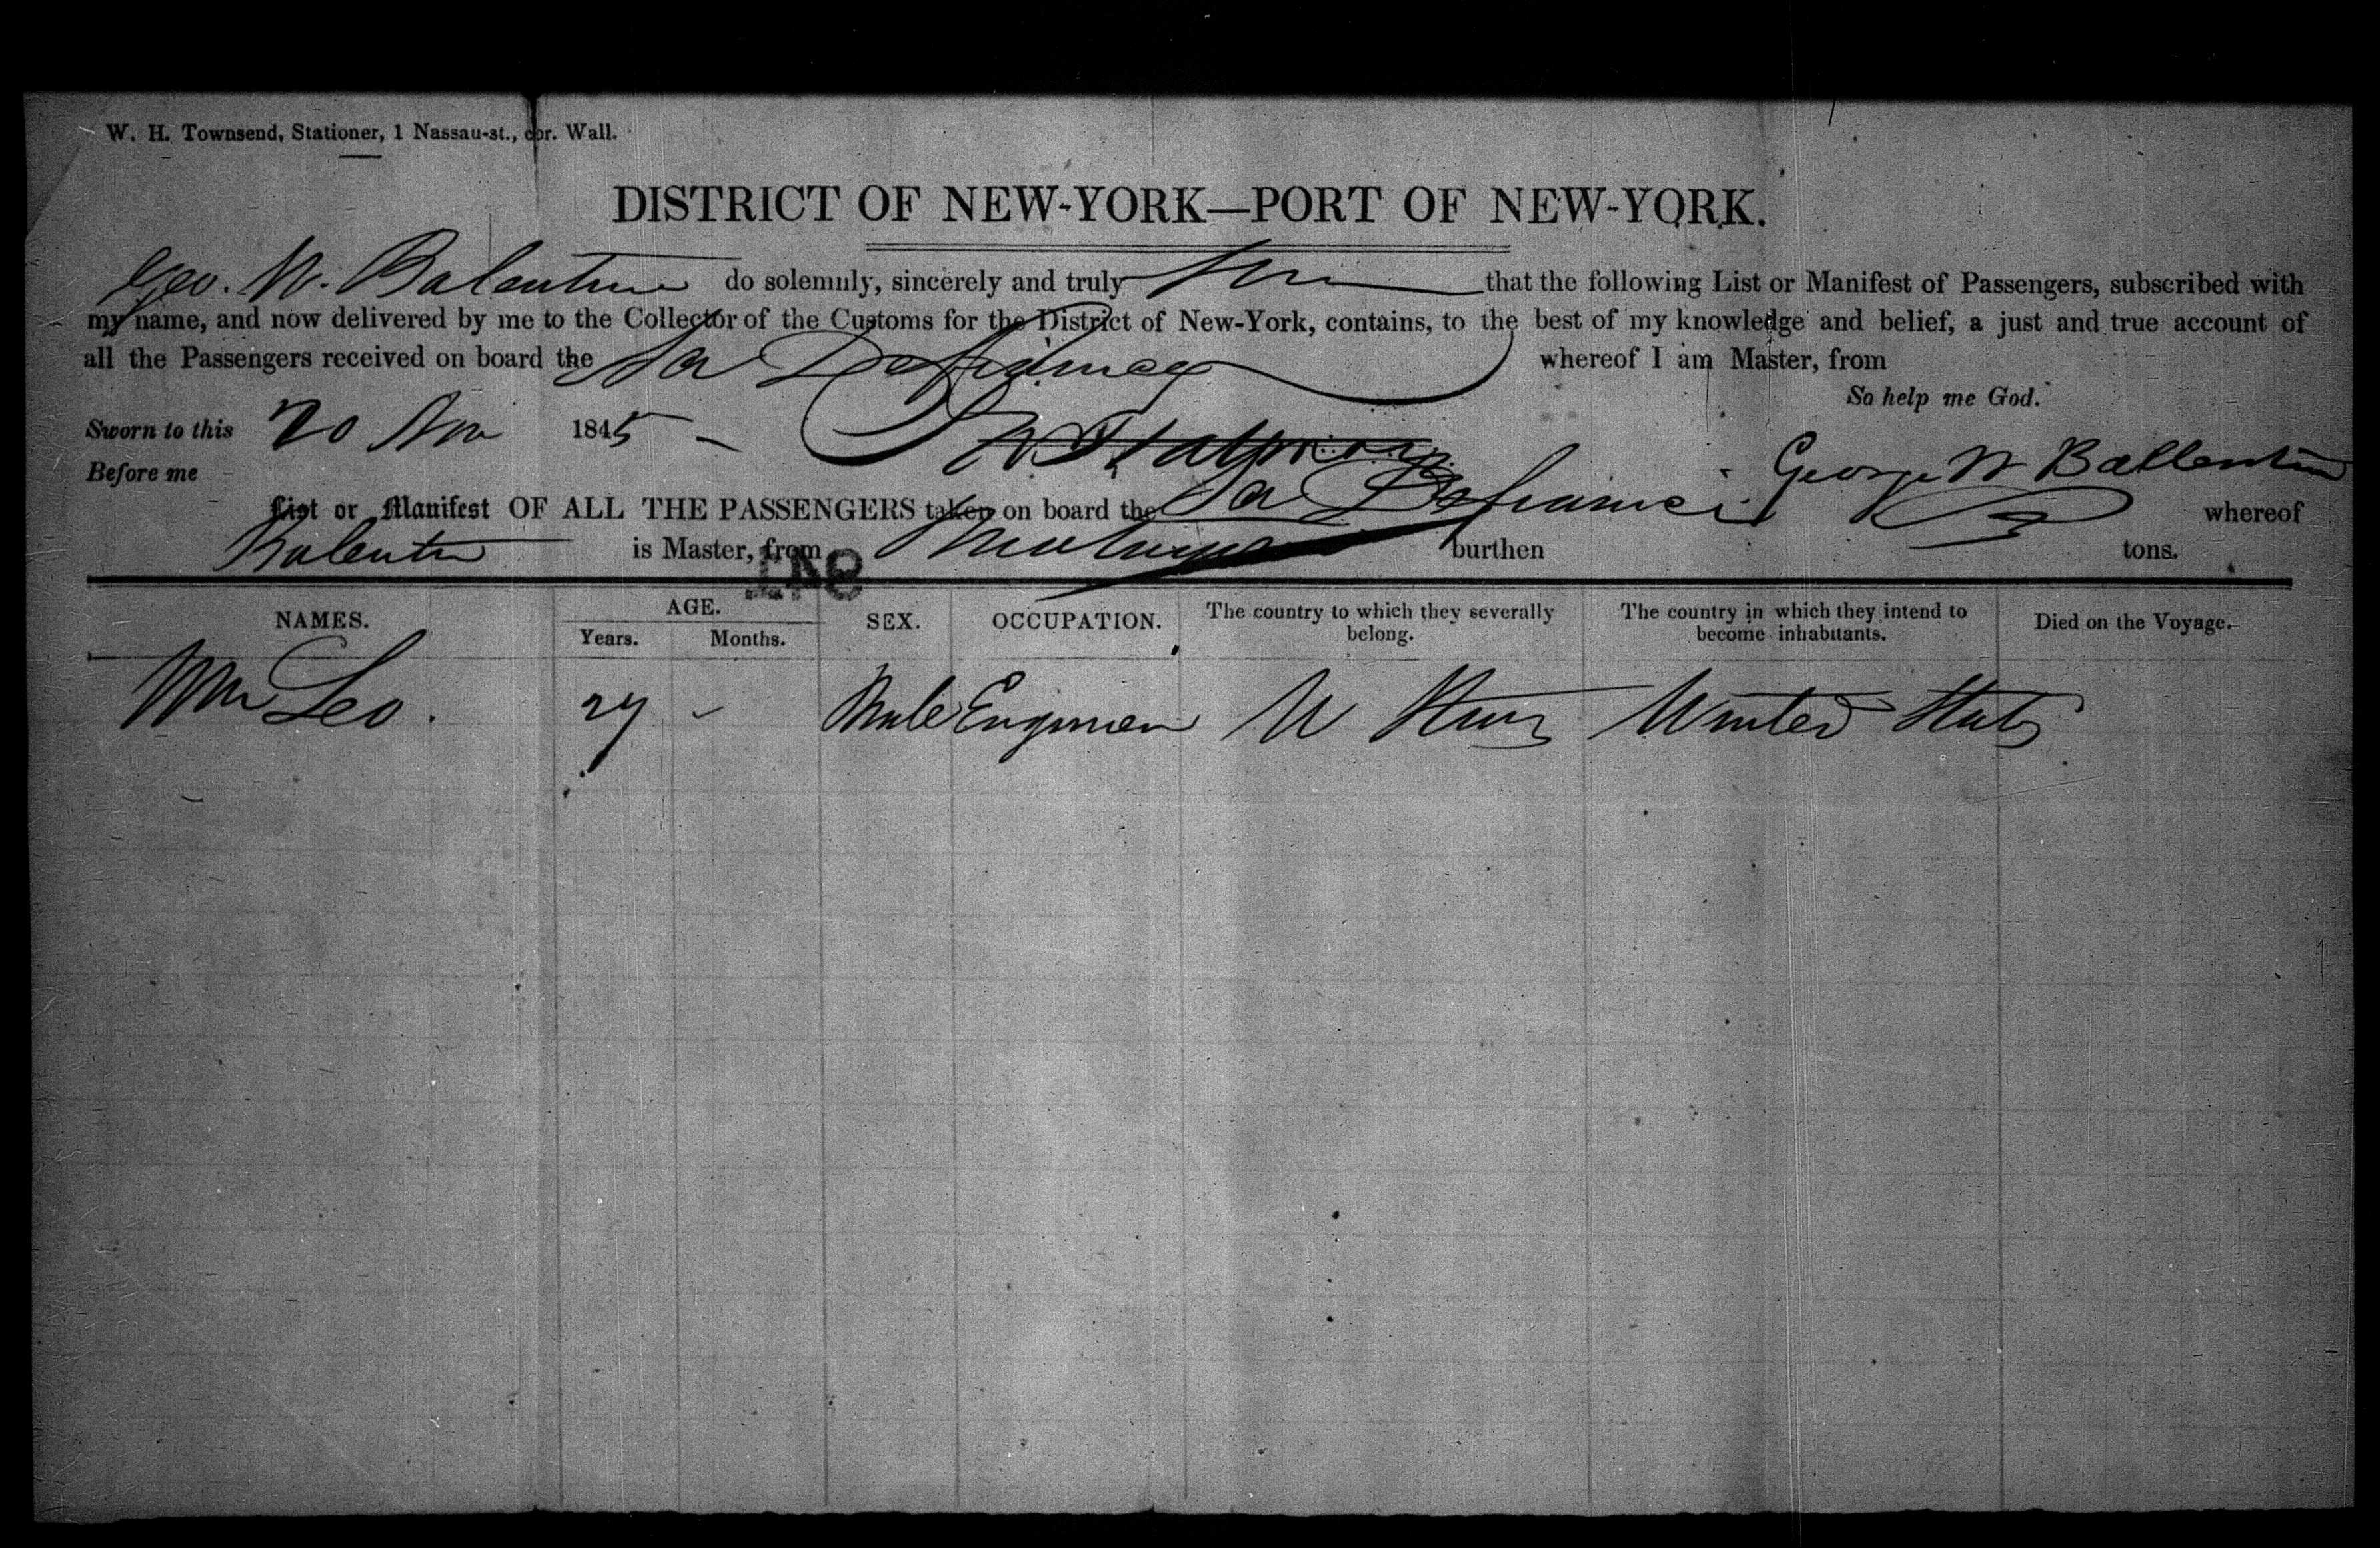 W. H. Townsend, Stationer, 1 Nassau-st., cor. Wall.
DISTRICT OF NEW-YORK—PORT OF NEW-YORK.
Geo. W. Balentine do solemnly, sincerely and truly that the following List or Manifest of Passengers, subscribed with
my name, and now delivered by me to the Collector of the Customs for the District of New-York, contains, to the best of my knowledge and belief, a just and true account of
all the Passengers received on board the whereof I am Master, from
So help me God.
Sworn to this 20 Nov 1845
Before me George W Ballentine
List or Manifest OF ALL THE PASSENGERS taken on board the whereof
is Master, from burthen tons.
NAMES. AGE. SEX. OCCUPATION. The country to which they severally belong. The country in which they intend to become inhabitants. Died on the Voyage.
Years. Months.
Wm Leo. 27 Male Engineer U States United States